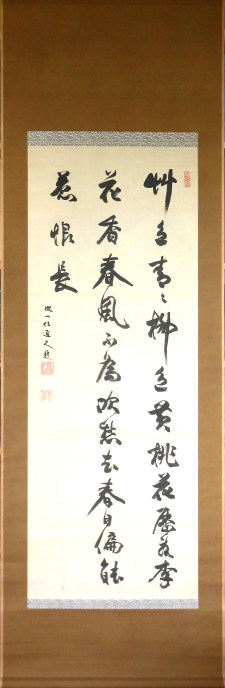 艸色青々柳色黄桃花歴乱李
花香春風不為吹愁去春日偏能
惹恨長